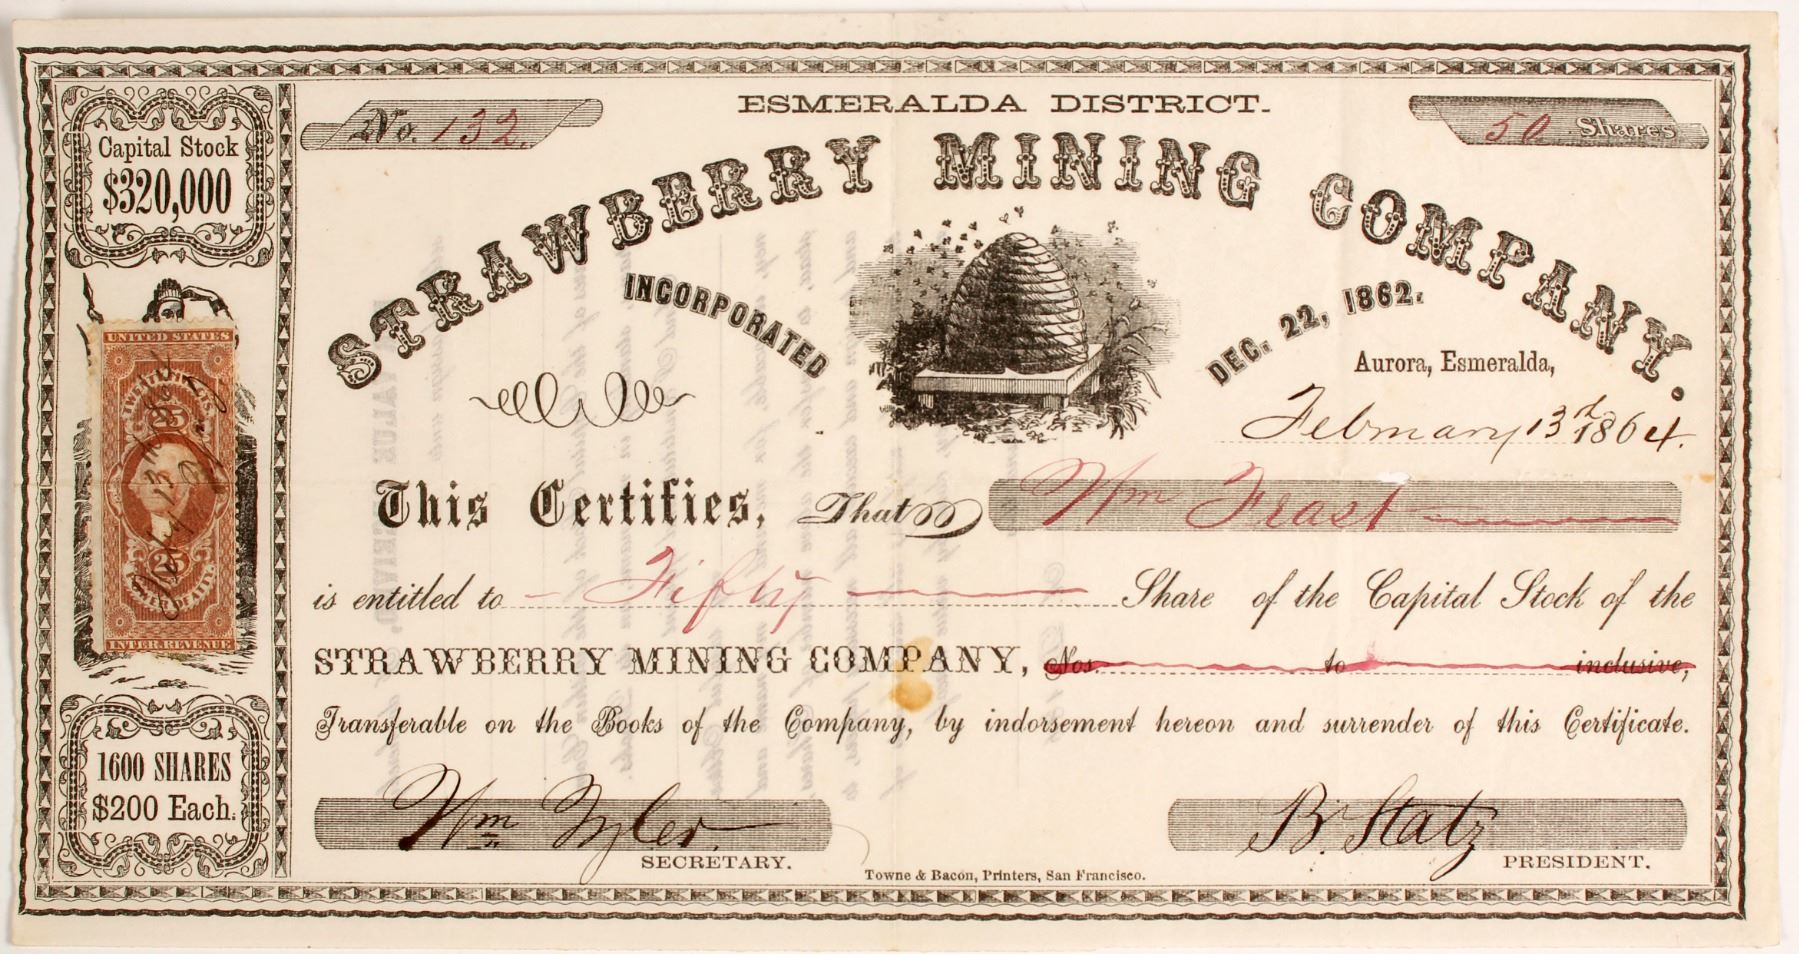 ESMERALDA DISTRICT.
No. 132.
50 Shares
STRAWBERRY MINING COMPANY.
INCORPORATED DEC. 22, 1862.
Aurora, Esmeralda,
February 13th 1864.
This Certifies, That Wm Feast
is entitled to Fifty Share of the Capital Stock of the
STRAWBERRY MINING COMPANY, Nos. to inclusive,
Transferable on the Books of the Company, by indorsement hereon and surrender of this Certificate.
Wm Tyler
SECRETARY.
B. Statz
PRESIDENT.
Towne & Bacon, Printers, San Francisco.
Capital Stock
$320,000
UNITED STATES
25
25
INTER. REVENUE
1600 SHARES
$200 Each.